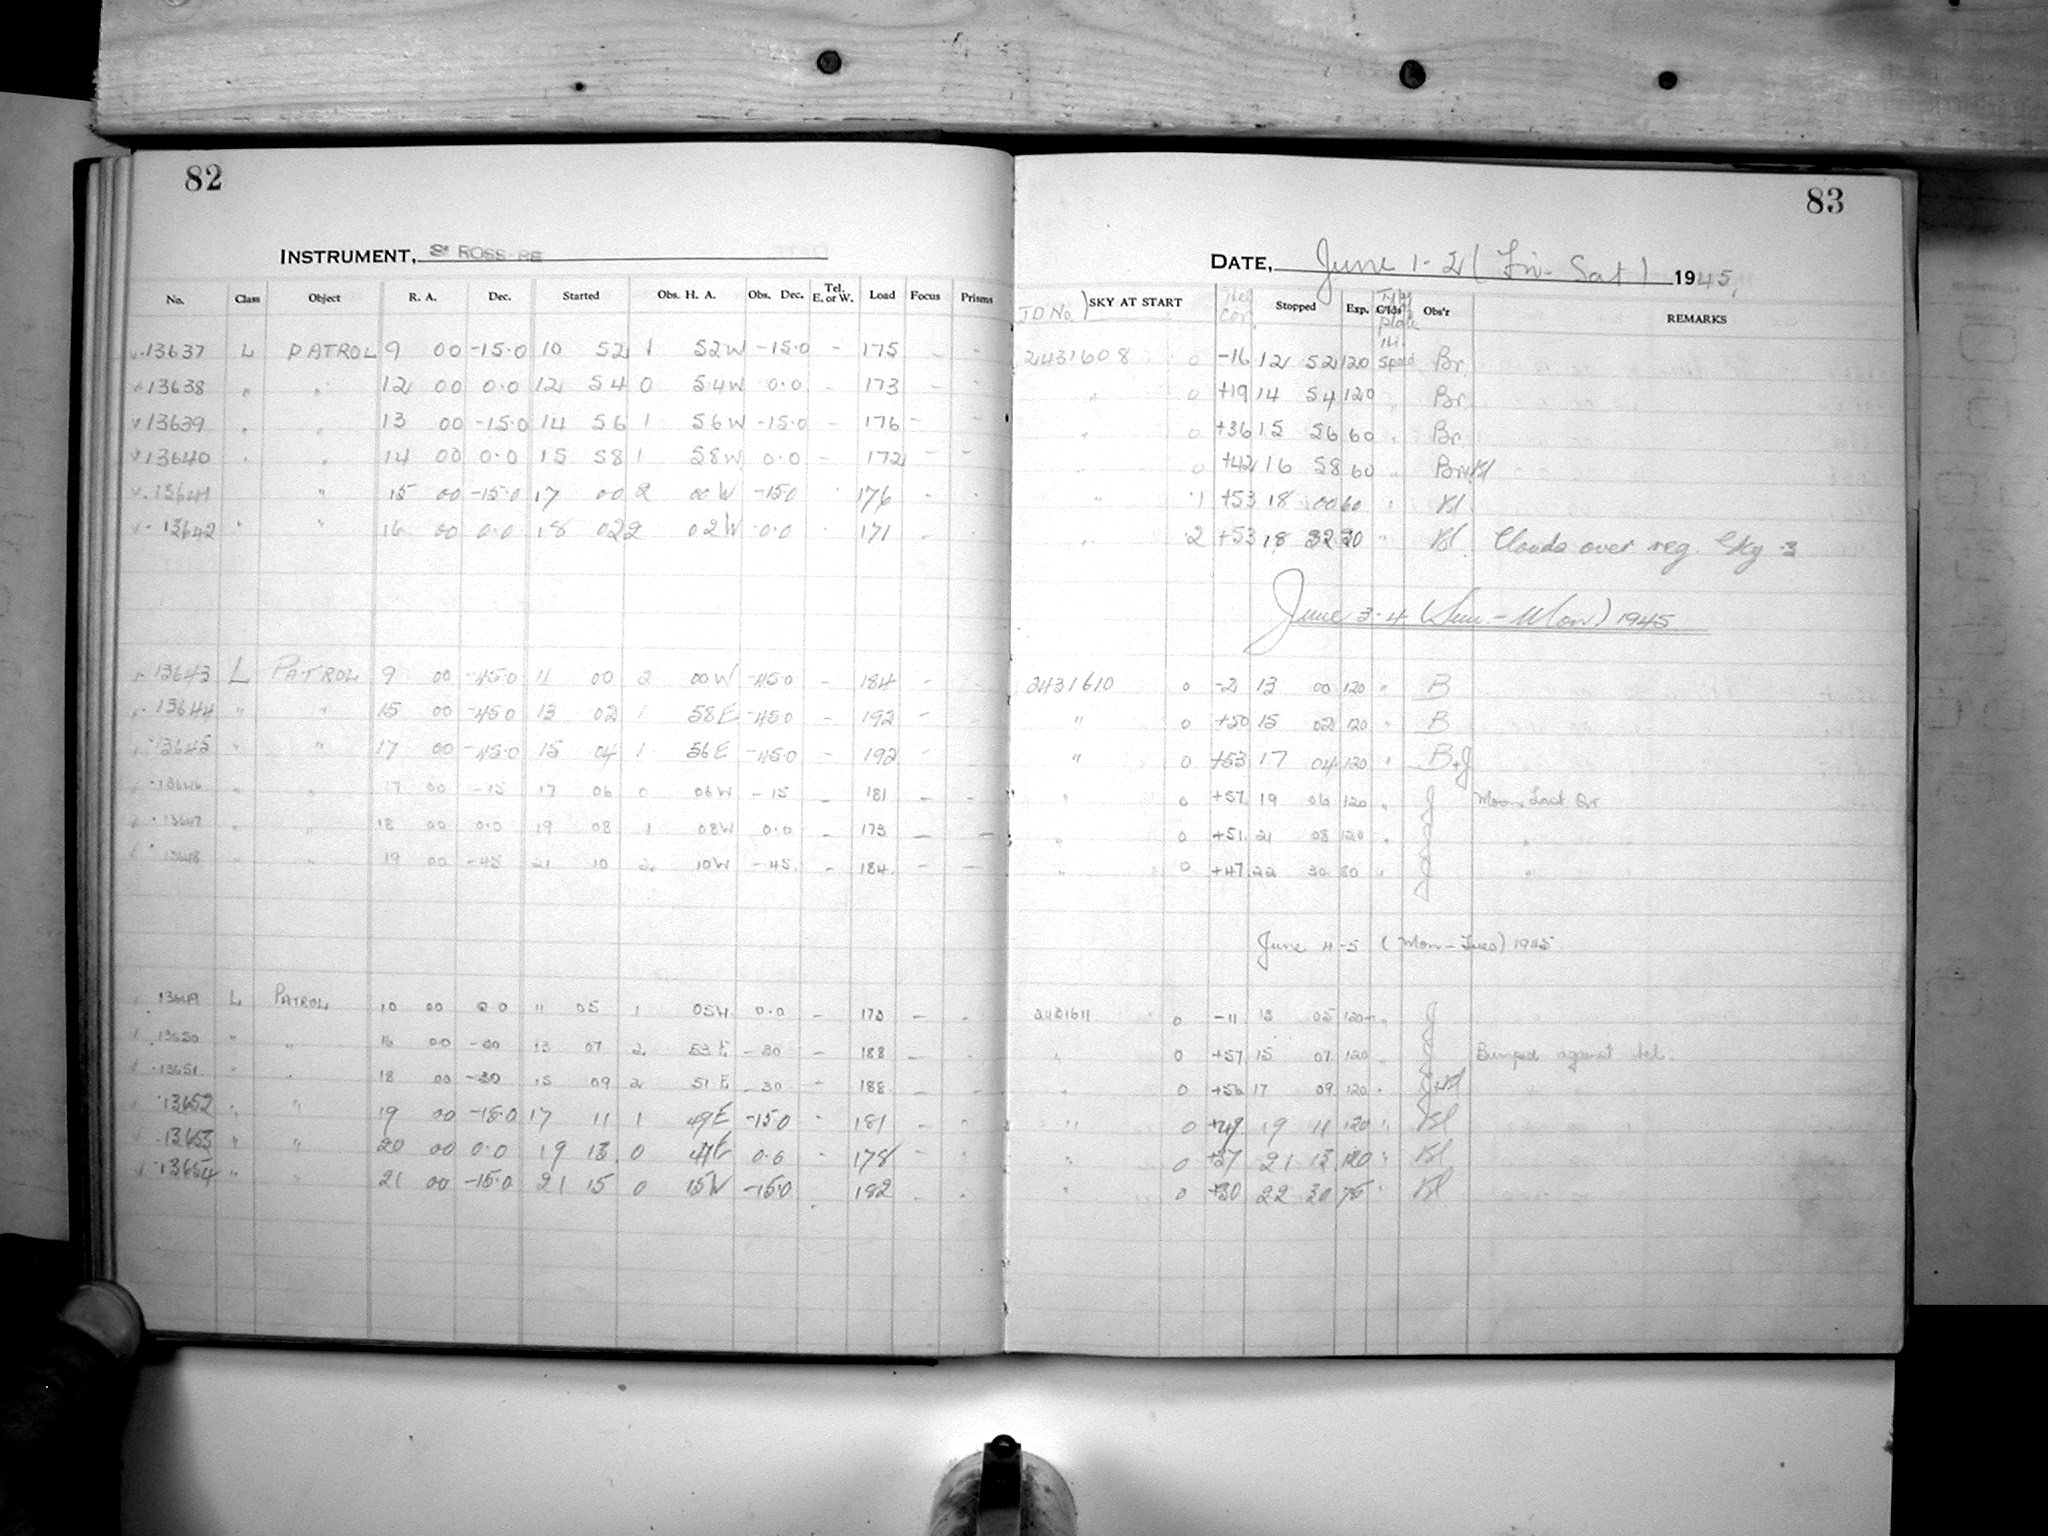 82
INSTRUMENT, ROSS
No. Class Object R. A. Dec. Started Obs. H. A. Obs. Dec. Tel. E. or W. Load Focus Prisms
13637 L PATROL 9 00 -15.0 10 52 1 52W -15.0 - 175 - -
13638 " " 12 00 0.0 12 54 0 54W 0.0 - 173 - -
13639 " " 13 00 -15.0 14 56 1 56W -15.0 - 176 - -
13640 " " 14 00 0.0 15 58 1 58W 0.0 - 172 - -
13641 " 15 00 -15.0 17 00 2 00W -150 176
13642 " " 16 00 0.0 18 02 2 02W 0.0 171
13643 L PATROL 9 00 -45.0 11 00 2 00W -450 - 184 -
13644 " " 15 00 -450 13 02 1 58E -450 - 192 -
13645 " " 17 00 -45.0 15 04 1 56E -45.0 - 192
13646 " " 17 00 -15 17 06 0 06W -15 - 181 - -
13647 " " 18 00 0.0 19 08 1 08W 0.0 - 173 - -
13648 " " 19 00 -45 21 10 2 10W -45 - 184 - -
13649 L PATROL 10 00 0.0 11 05 1 05W 0.0 - 173 - -
13650 " " 16 00 -30 13 07 2 53E -30 - 188 -
13651 " " 18 00 -30 15 09 2 51E -30 - 188 - -
13652 " " 19 00 -15.0 17 11 1 49E -150 - 181 -
13653 " " 20 00 0.0 19 13 0 47E 0.0 178
13654 " " 21 00 -15.0 21 15 0 15W -150 182
83
DATE, June 1-2 (Fri-Sat) 1945,
JD No. SKY AT START Tel Cor. Stopped Exp. Type plate Obs'r REMARKS
2431608 0 -16 12 52 120 Hi Speed Br.
" 0 +19 14 54 120 Br.
" 0 +36 15 56 60 " Br.
0 +42 16 58 60 " Br+Bl
" 1 +53 18 00 60 " Bl
" 2 +53 18 32 30 " Bl. Clouds over reg. Sky 3
June 3-4 (Sun.-Mon) 1945
2431610 0 -2 13 00 120 " B
" 0 +50 15 02 120 " B
" 0 +53 17 04 120 " B+J
" 0 +57 19 06 120 " J Moon Last Qr
" 0 +51 21 08 120 " J "
" 0 +47 22 30 80 " J "
June 4-5 (Mon-Tues) 1945
2431611 0 -11 13 05 120 " J
" 0 +57 15 07 120 " J Bumped against tel.
" 0 +56 17 09 120 " J+Bl
" 0 +49 19 11 120 " Bl
" 0 +37 21 13 120 " Bl
" 0 +30 22 30 75 " Bl